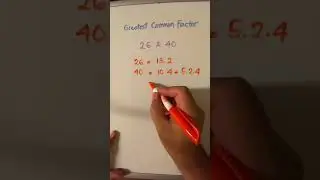 Greatest Common Factor
26 & 40
26 = 13.2
40 = 10.4 = 5.2.4